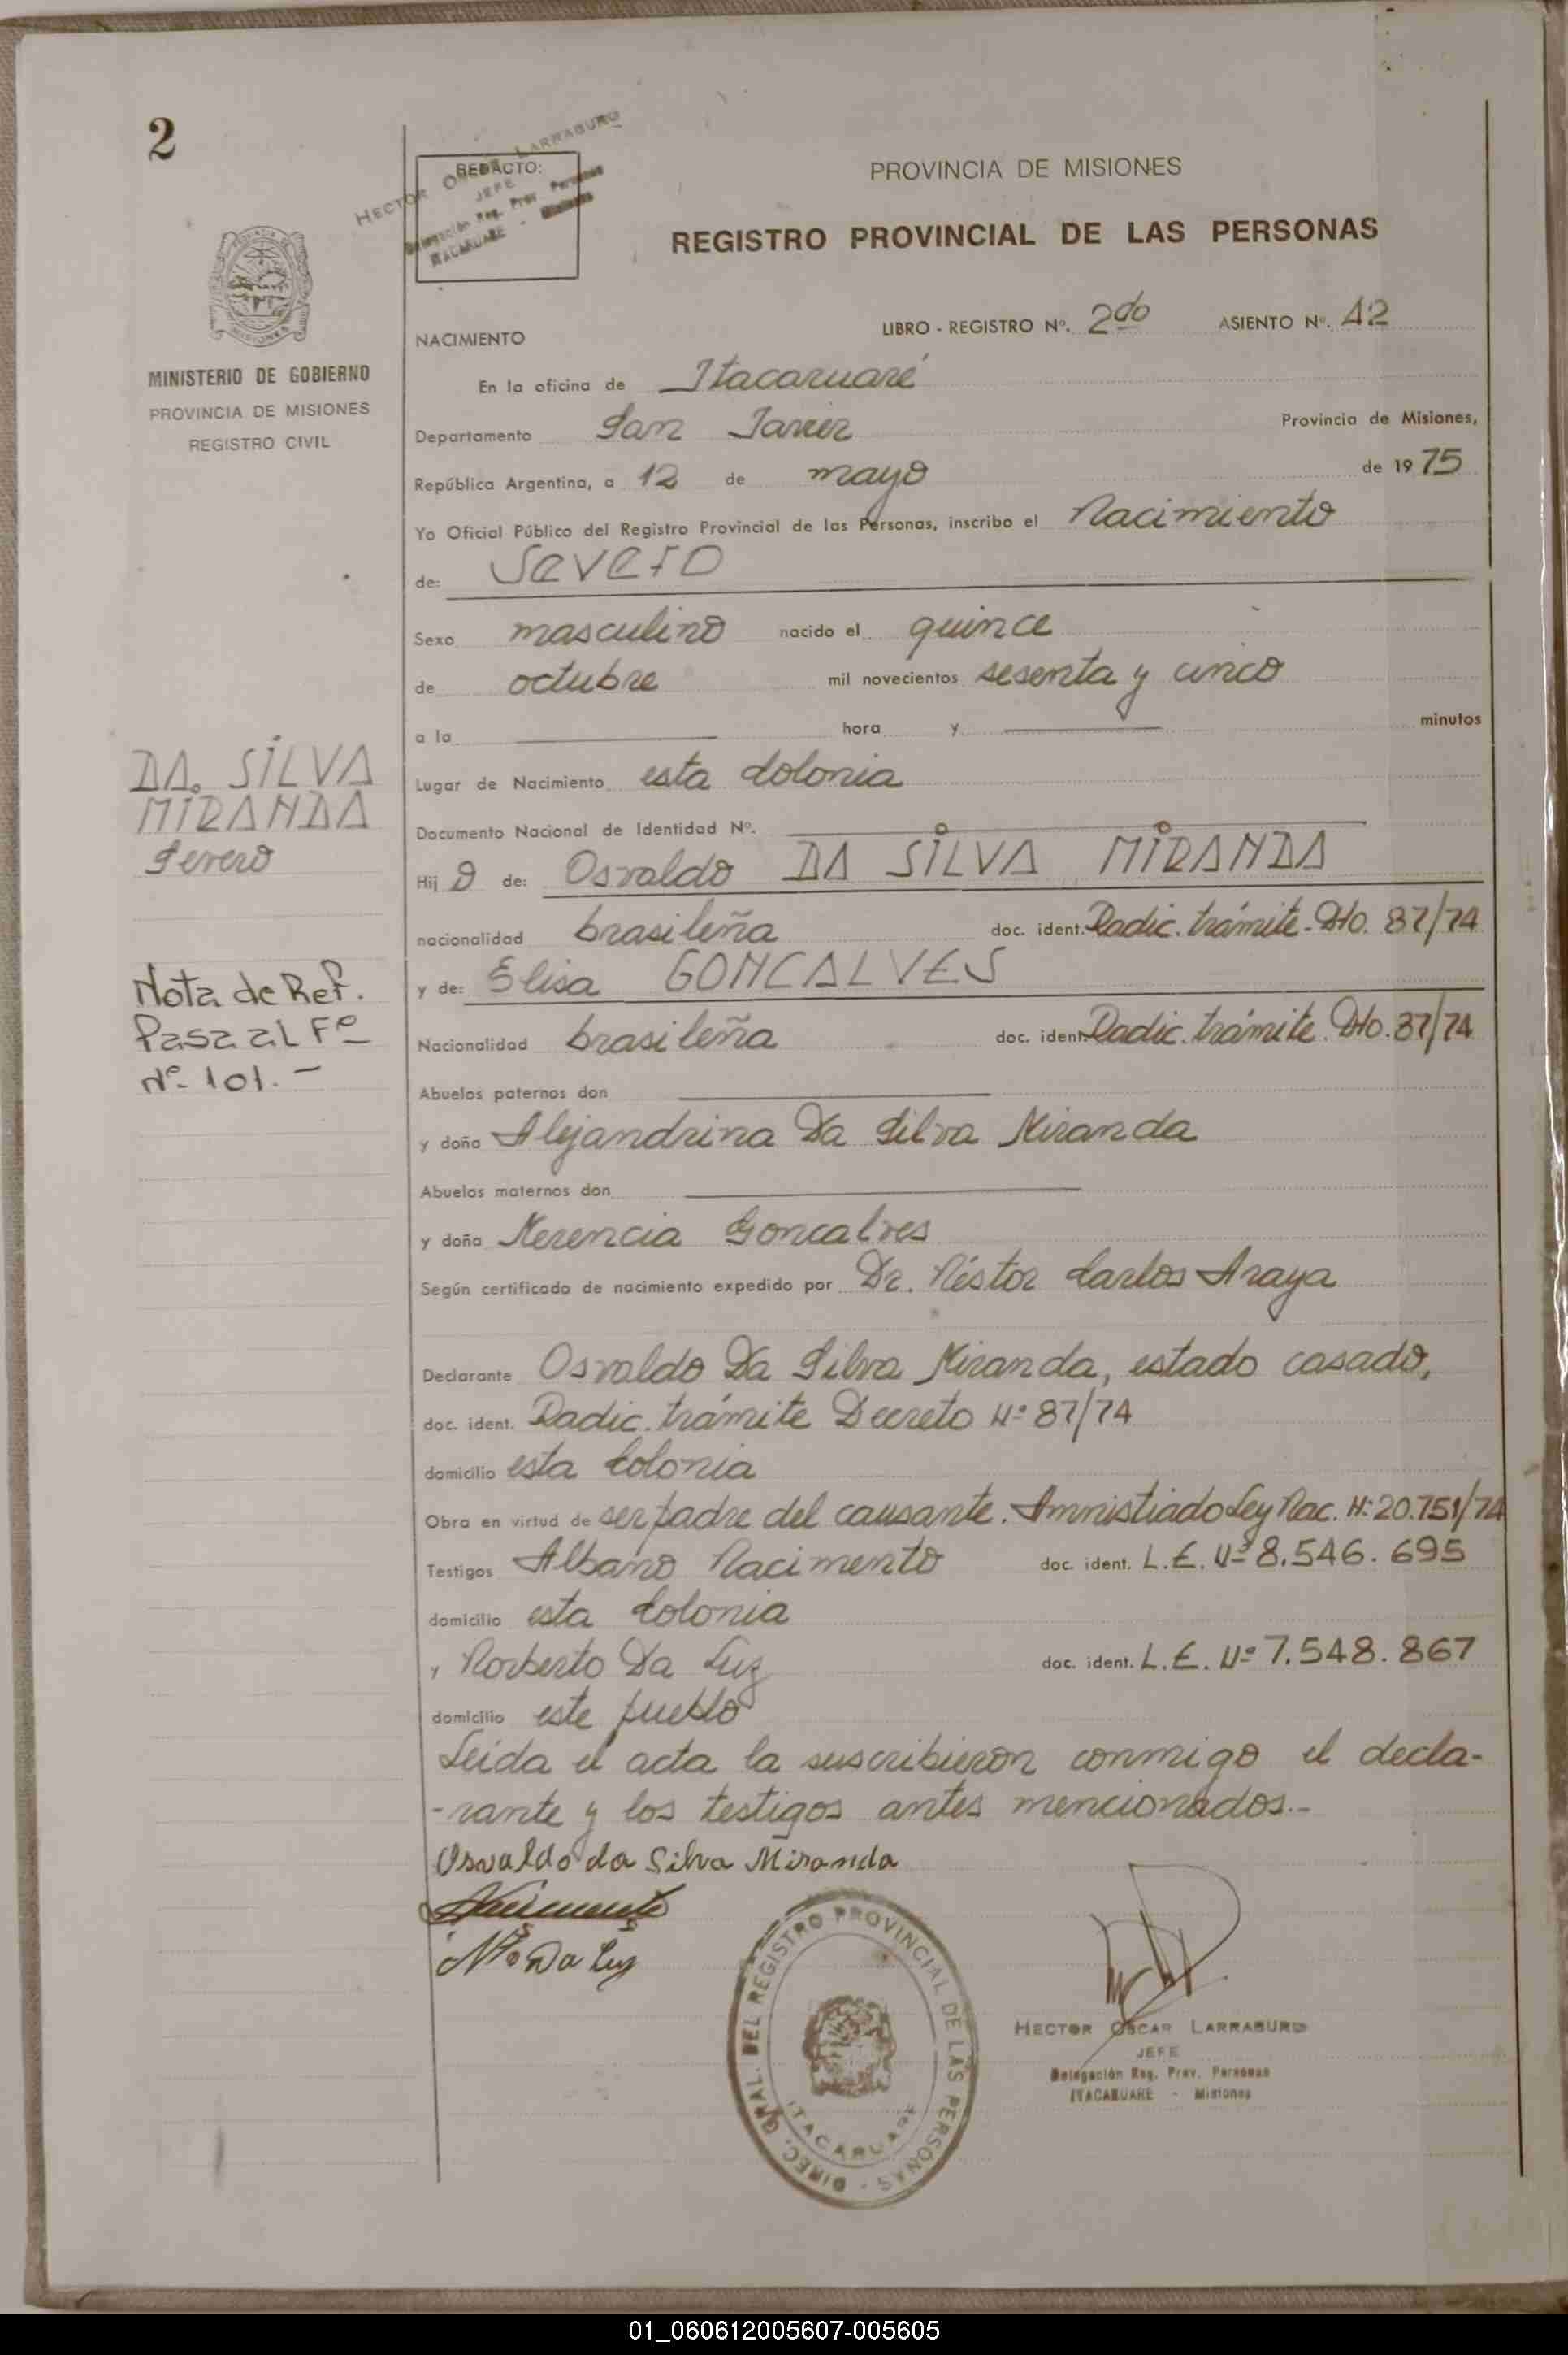 2
HECTOR OSCAR LARRABURO
REDACTO:
JEFE
Delegación Reg. Prov. Personas
ITACARUARE - Misiones
PROVINCIA DE MISIONES
REGISTRO PROVINCIAL DE LAS PERSONAS
MINISTERIO DE GOBIERNO
PROVINCIA DE MISIONES
REGISTRO CIVIL
NACIMIENTO LIBRO - REGISTRO Nº. 2do ASIENTO Nº. 42
En la oficina de Itacaruaré
Departamento San Javier Provincia de Misiones,
República Argentina, a 12 de mayo de 1975
Yo Oficial Público del Registro Provincial de las Personas, inscribo el Nacimiento
de: Severo
Sexo masculino nacido el quince
de octubre mil novecientos sesenta y cinco
a la hora y minutos
Lugar de Nacimiento esta Colonia
Documento Nacional de Identidad Nº.
Hij o de: Osvaldo DA SILVA MIRANDA
nacionalidad brasileña doc. ident. Radic. trámite. Dto. 87/74
y de: Elisa GONCALVES
Nacionalidad brasileña doc. ident. Radic. trámite. Dto. 87/74
Abuelos paternos don
y doña Alejandrina Da Silva Miranda
Abuelos maternos don
y doña Merencia Goncalves
Según certificado de nacimiento expedido por Dr. Néstor Carlos Araya
Declarante Osvaldo Da Silva Miranda, estado casado,
doc. ident. Radic. trámite Decreto Nº 87/74
domicilio esta Colonia
Obra en virtud de ser padre del causante. Amnistiado Ley Nac. Nº 20.751/74
Testigos Albano Nacimento doc. ident. L.E. Nº 8.546.695
domicilio esta Colonia
y Norberto Da Luz doc. ident. L.E. Nº 7.548.867
domicilio este pueblo
Leída el acta la suscribieron conmigo el decla-
-rante y los testigos antes mencionados.-
Osvaldo da Silva Miranda
Nacimento
Nto Da Luz
DA SILVA
MIRANDA
Severo
Nota de Ref.
Pasa al Fº
Nº 101.-
DIREC. GRAL. DEL REGISTRO PROVINCIAL DE LAS PERSONAS -
ITACARUARE
HECTOR OSCAR LARRABURO
JEFE
Delegación Reg. Prov. Personas
ITACARUARE - Misiones
01_060612005607-005605